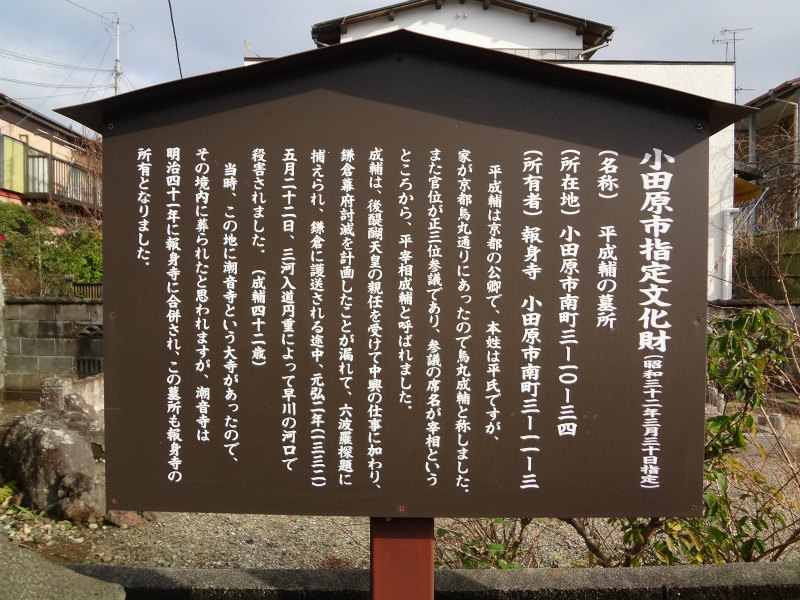 小田原市指定文化財(昭和三十二年三月三十日指定)
(名称) 平成輔の墓所
(所在地)小田原市南町三ー一〇ー三四
(所有者)報身寺 小田原市南町三ー一一ー三
平成輔は京都の公卿で、本姓は平氏ですが、
家が京都烏丸通りにあったので烏丸成輔と称しました。
また官位が正三位参議であり、参議の席名が宰相という
ところから、平宰相成輔と呼ばれました。
成輔は、後醍醐天皇の親任を受けて中興の仕事に加わり、
鎌倉幕府討滅を計画したことが漏れて、六波羅探題に
捕えられ、鎌倉に護送される途中、元弘二年(一三三二)
五月二十二日、三河入道円重によって早川の河口で
殺害されました。(成輔四十二歳)
当時、この地に潮音寺という大寺があったので、
その境内に葬られたと思われますが、潮音寺は
明治四十一年に報身寺に合併され、この墓所も報身寺の
所有となりました。